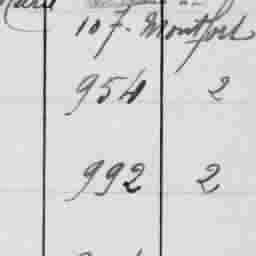 107. Montfort
954 2
992 2